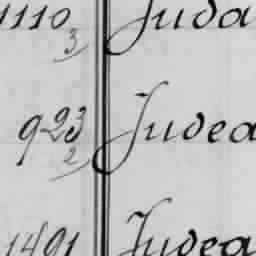 1110/3 Juda
923/2 Judea
1491 Judea